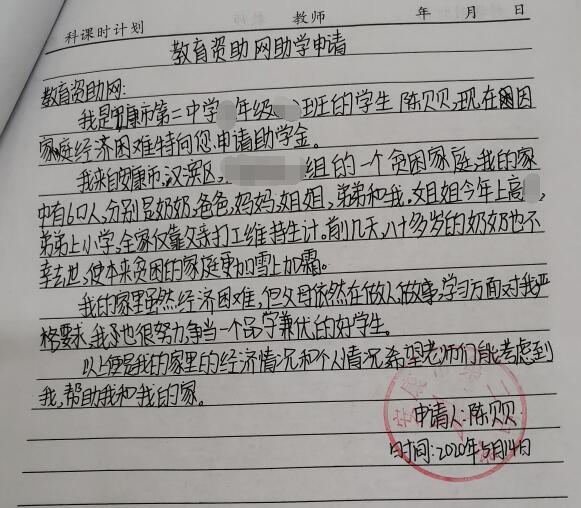 科课时计划 教师 年 月 日
教育资助网助学申请
教育资助网:
我是安康市第二中学 年级 班的学生陈贝贝,现在因
家庭经济困难特向您申请助学金。
我来自安康市,汉滨区, 组的一个贫困家庭,我的家
中有6口人,分别是奶奶,爸爸,妈妈,姐姐,弟弟和我。姐姐今年上高
弟弟上小学,全家仅靠父亲打工维持生计。前几天,八十多岁的奶奶也不
幸去世,使本来贫困的家庭更加雪上加霜。
我的家里虽然经济困难,但父母依然在做人做事,学习方面对我严
格要求,我也很努力争当一个品学兼优的好学生。
以上便是我的家里的经济情况和个人情况希望老师们能考虑到
我,帮助我和我的家。
申请人:陈贝贝
时间:2020年5月14日